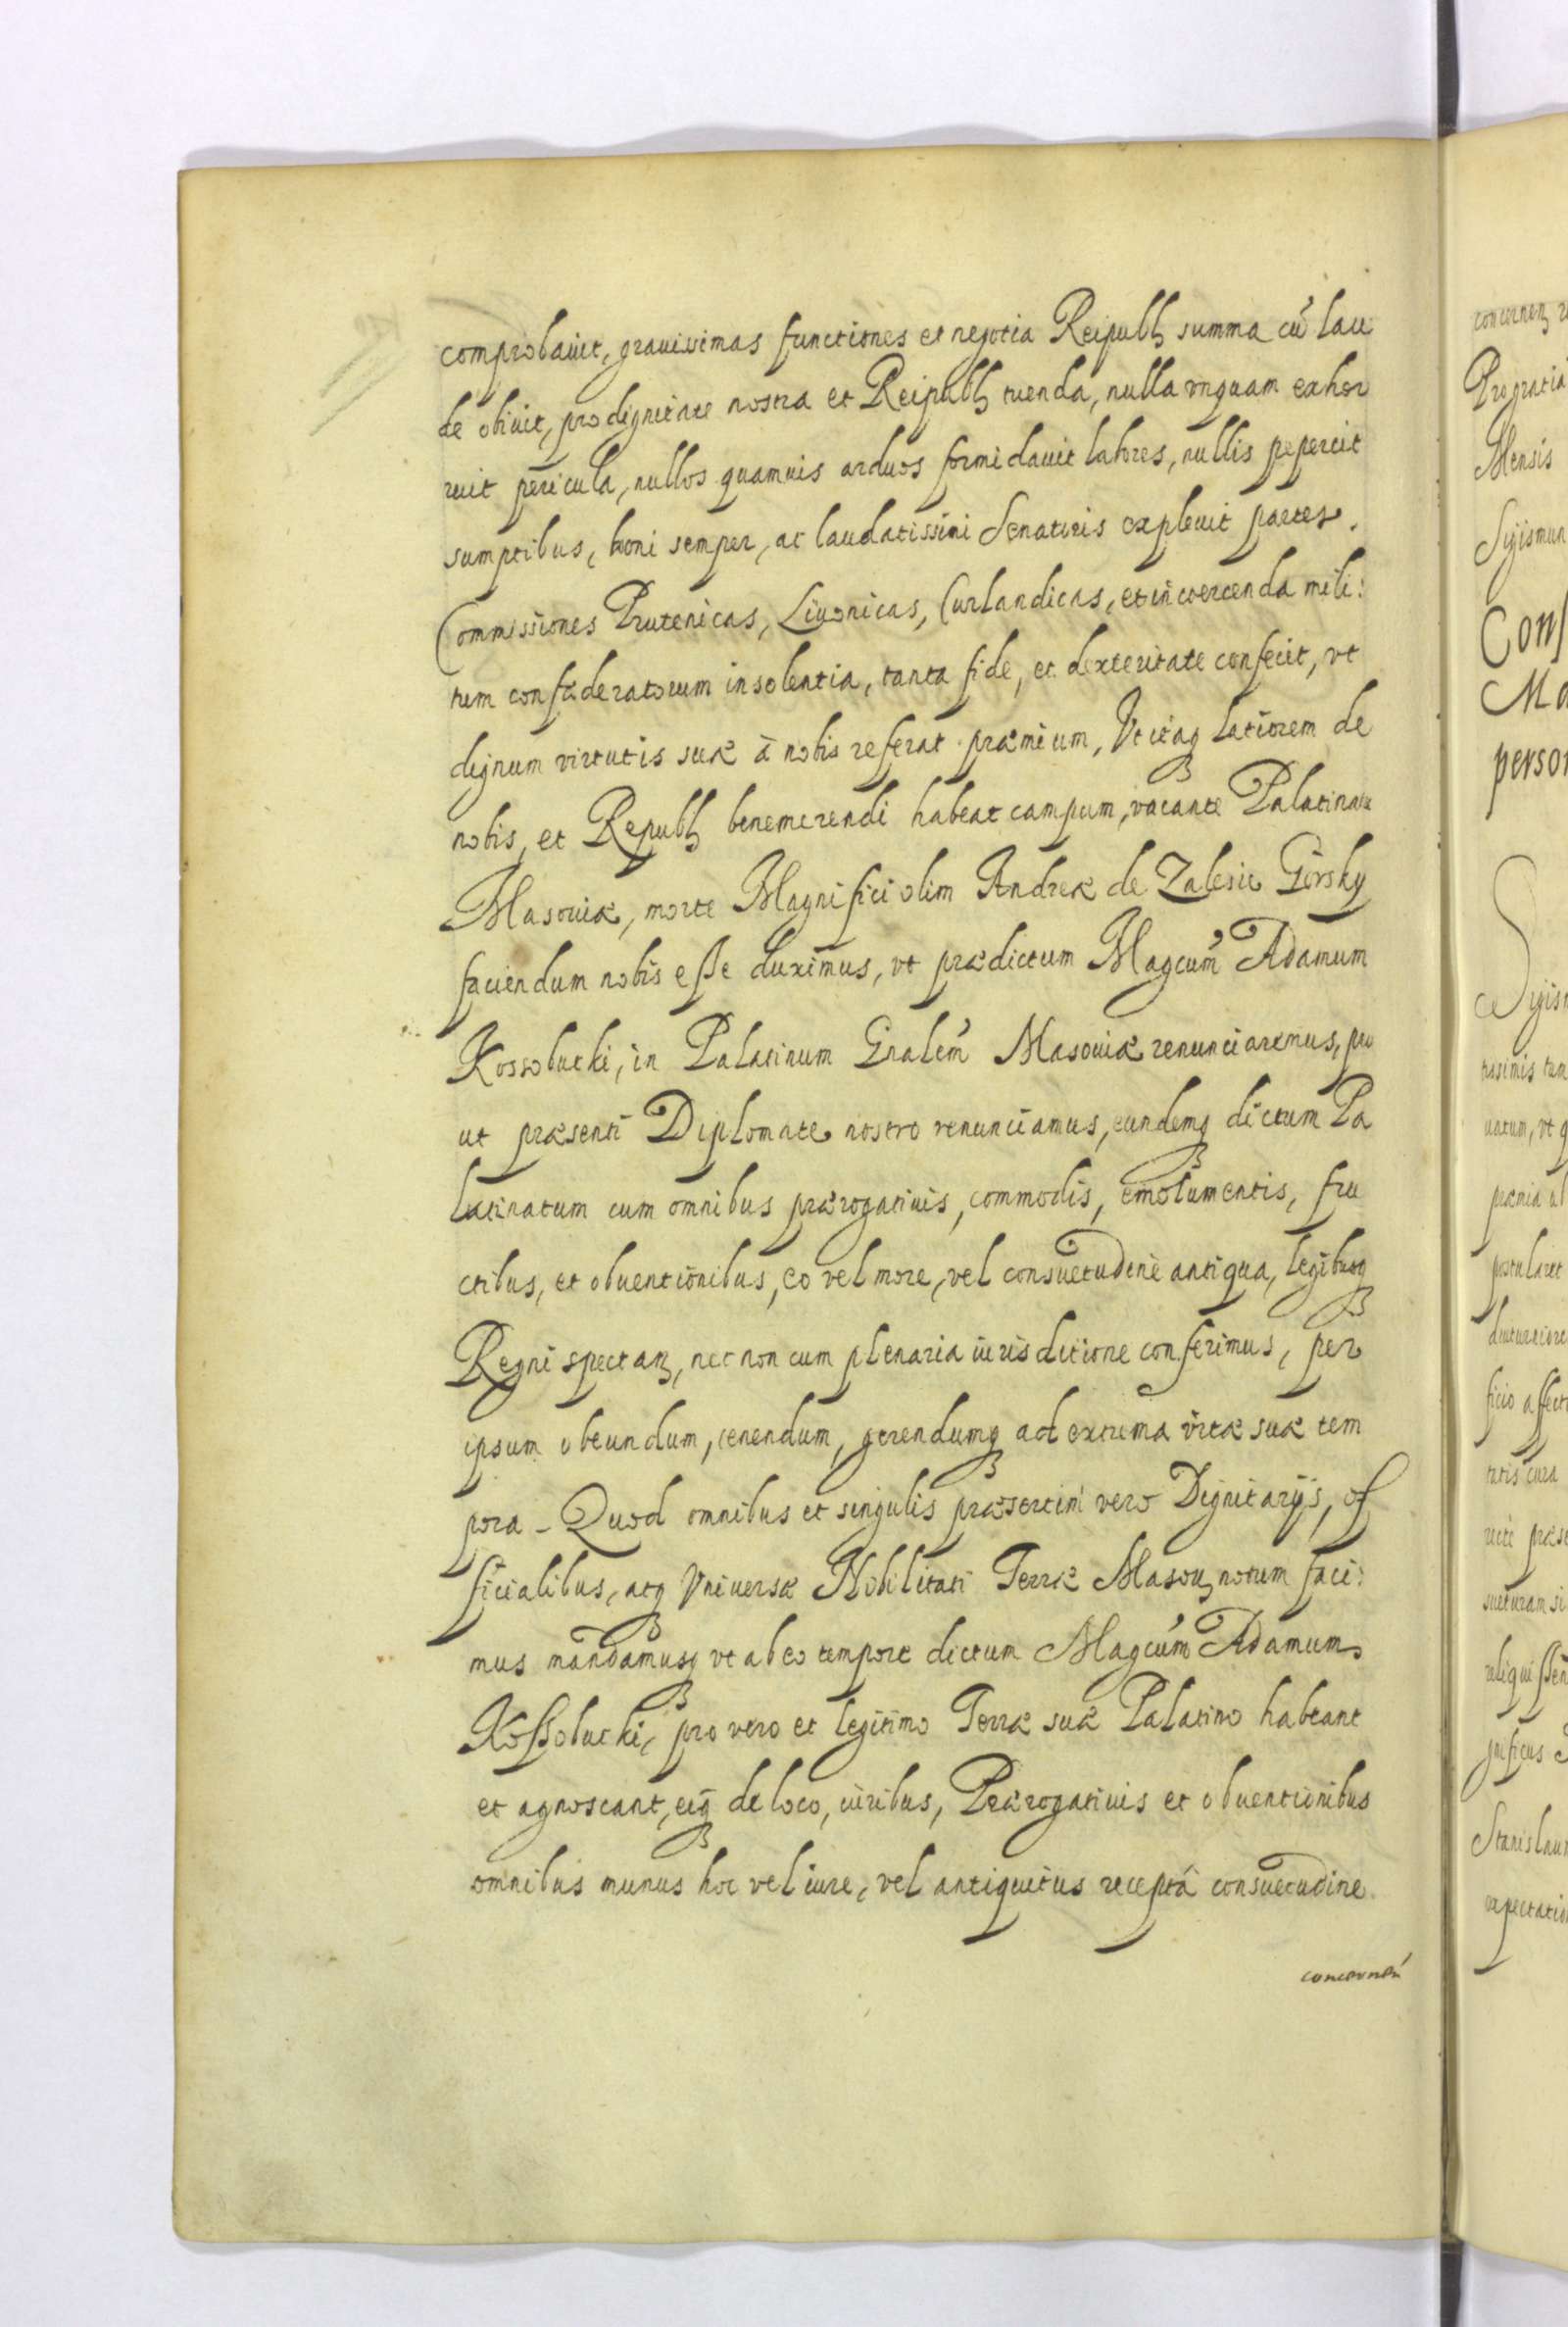 comprobauit, grauissimas functiones et negotia Reipubl: summa cũ lau
de obiuit, pro dignitate nostra et Reipubl: tuenda, nulla vnquam exhor
ruit pericula, nullos quamuis arduos formidauit labores, nullis pepercit
sumptibus, boni semper, ac laudatissimi Senatoris expleuit partes.
Commissiones Prutenicas, Liuonicas, Curlandicas, et in coercenda mili:
tum confæderatorum insolentia, tanta fide, et dexteritate confecit, vt
dignum virtutis suæ à nobis referat præmium, Vt itaq latiorem de
nobis, et Republ: benemerendi habeat campum, vacante Palatinatu
Masouiæ, morte Magnifici olim Andreæ de Zalesie Górsky
faciendum nobis eße duximus, vt prædictum Magcum̃ Adamum
Kossobucki, in Palatinum Gnalem̃ Masouiæ renunciaremus, pro
ut præsenti Diplomate nostro renunciamus, eundemq dictum Pa
latinatum cum omnibus prærogatiuis, commodis, emolumentis, fru
ctibus, et obuentionibus, eo vel more, vel consuetudine antiqua, legibusq
Regni spectan:, nec non cum plenaria iurisditione conferimus, per
ipsum obeundum, tenendum, gerendumq ad extrema vitæ suæ tem
pora - Quod omnibus et singulis præsertim vero Dignitarijs, of
ficialibus, atq Vniuersæ Nobilitati Terræ Masou: notum faci:
mus mandamusq vt ab eo tempore dictum Magcum̃ Adamum
Koßobucki, pro vero et legitimo Terræ suæ Palatino habeant
et agnoscant, eiq de loco, iuribus, Prærogatiuis et obuentionibus
omnibus munus hoc vel iure, vel antiquitus receptâ consuetudine
concernen̄
concernen: 
Pro gratia
Mensis
Sigismun
Cons
Ma
person
Sigism
uatum, vt q
præmia
postularet
diuturniore
ficio affect
tatis cura
Stanislaum
expectation